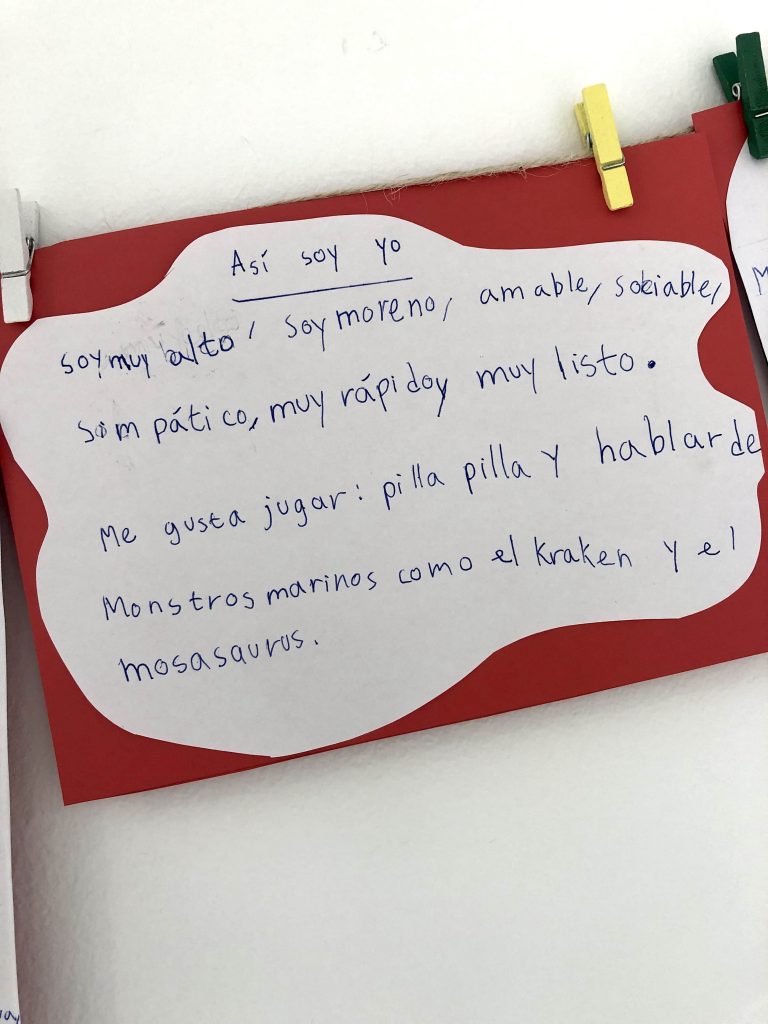 Así soy yo
soy muy alto, soy moreno, amable, sociable,
simpático, muy rápido y muy listo.
Me gusta jugar: pilla pilla y hablar de
Monstros marinos como el kraken y el
mosasaurus.